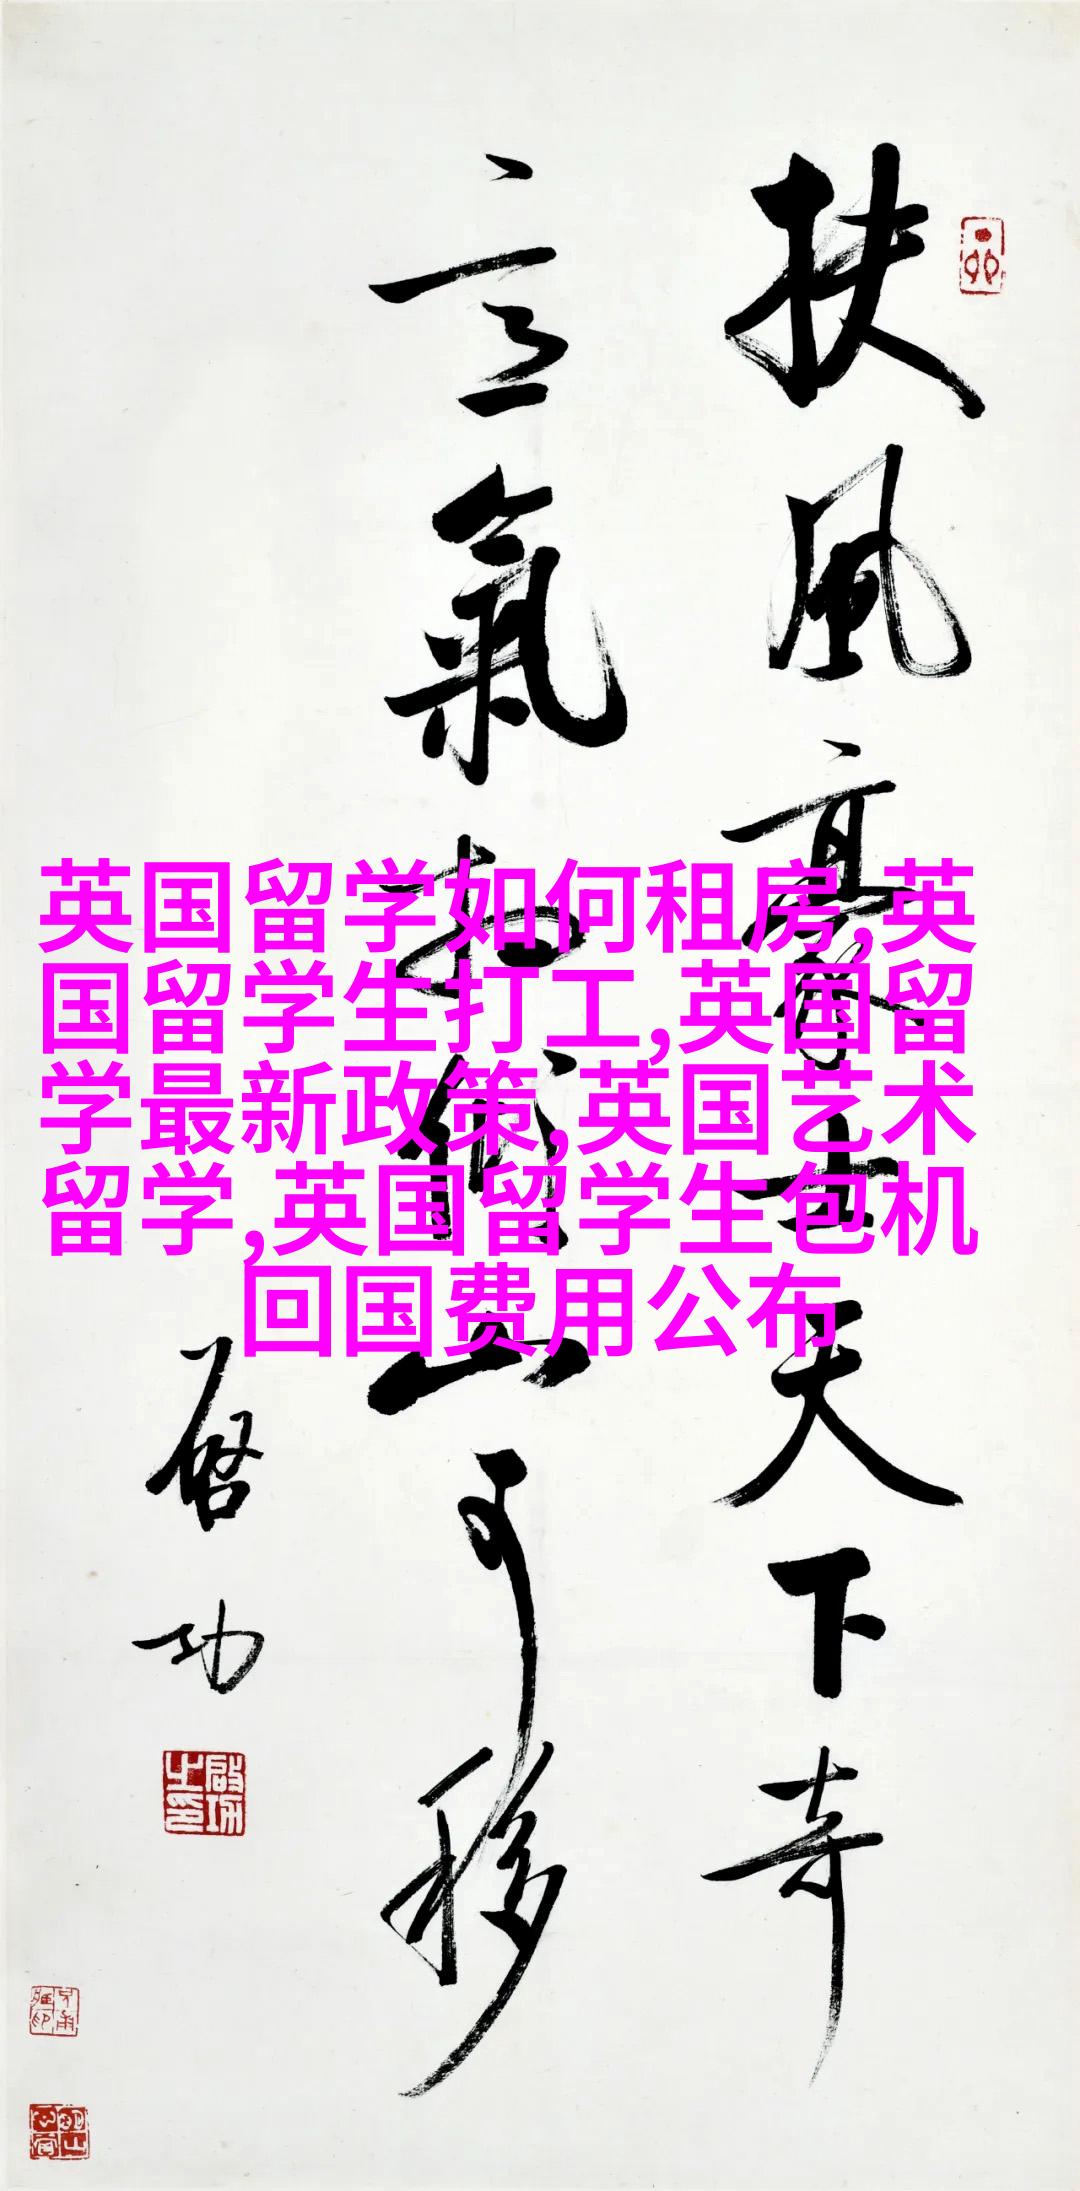 扶風豪士天下奇
意氣相傾山可移
启功
啟功之印
英国留学如何租房,英
国留学生打工,英国留
学最新政策,英国艺术
留学,英国留学生包机
回国费用公布